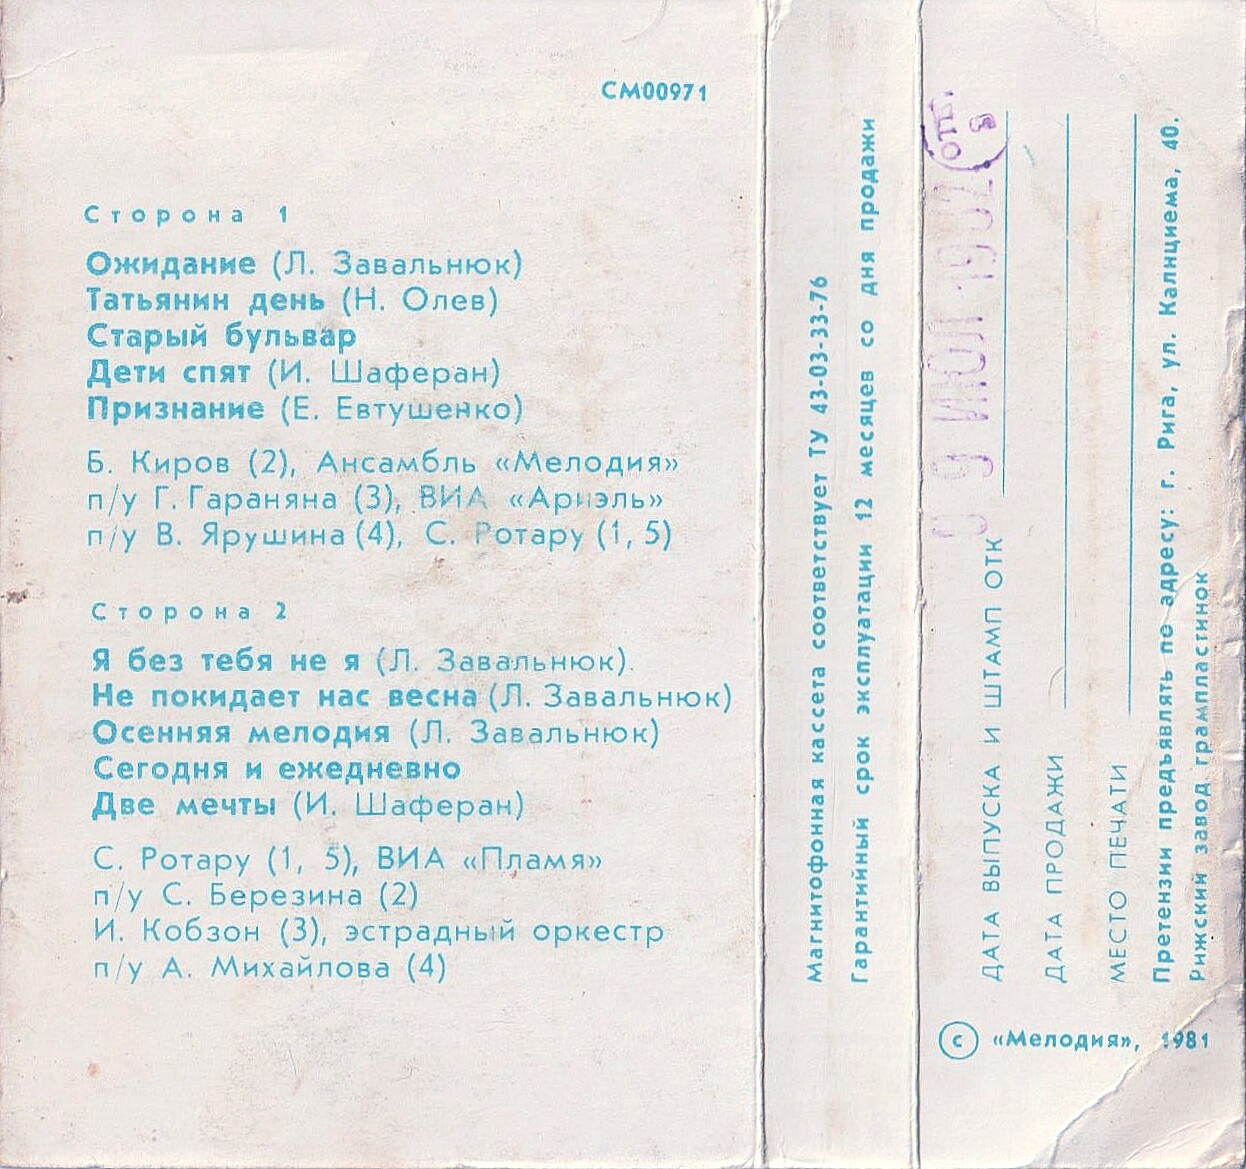 СМ00971
Сторона 1
Ожидание (Л. Завальнюк)
Татьянин день (Н. Олев)
Старый бульвар
Дети спят (И. Шаферан)
Признание (Е. Евтушенко)
Б. Киров (2), Ансамбль «Мелодия»
п/у Г. Гараняна (3), ВИА «Ариэль»
п/у В. Ярушина (4), С. Ротару (1, 5)
Сторона 2
Я без тебя не я (Л. Завальнюк).
Не покидает нас весна (Л. Завальнюк)
Осенняя мелодия (Л. Завальнюк)
Сегодня и ежедневно
Две мечты (И. Шаферан)
С. Ротару (1, 5), ВИА «Пламя»
п/у С. Березина (2)
И. Кобзон (3), эстрадный оркестр
п/у А. Михайлова (4)
Магнитофонная кассета соответствует ТУ 43-03-33-76
Гарантийный срок эксплуатации 12 месяцев со дня продажи
ДАТА ВЫПУСКА И ШТАМП ОТК
0 9 ИЮЛ 1982
ДАТА ПРОДАЖИ
МЕСТО ПЕЧАТИ
Претензии предъявлять по адресу: г. Рига, ул. Калнциема, 40.
Рижский завод грампластинок
© «Мелодия», 1981